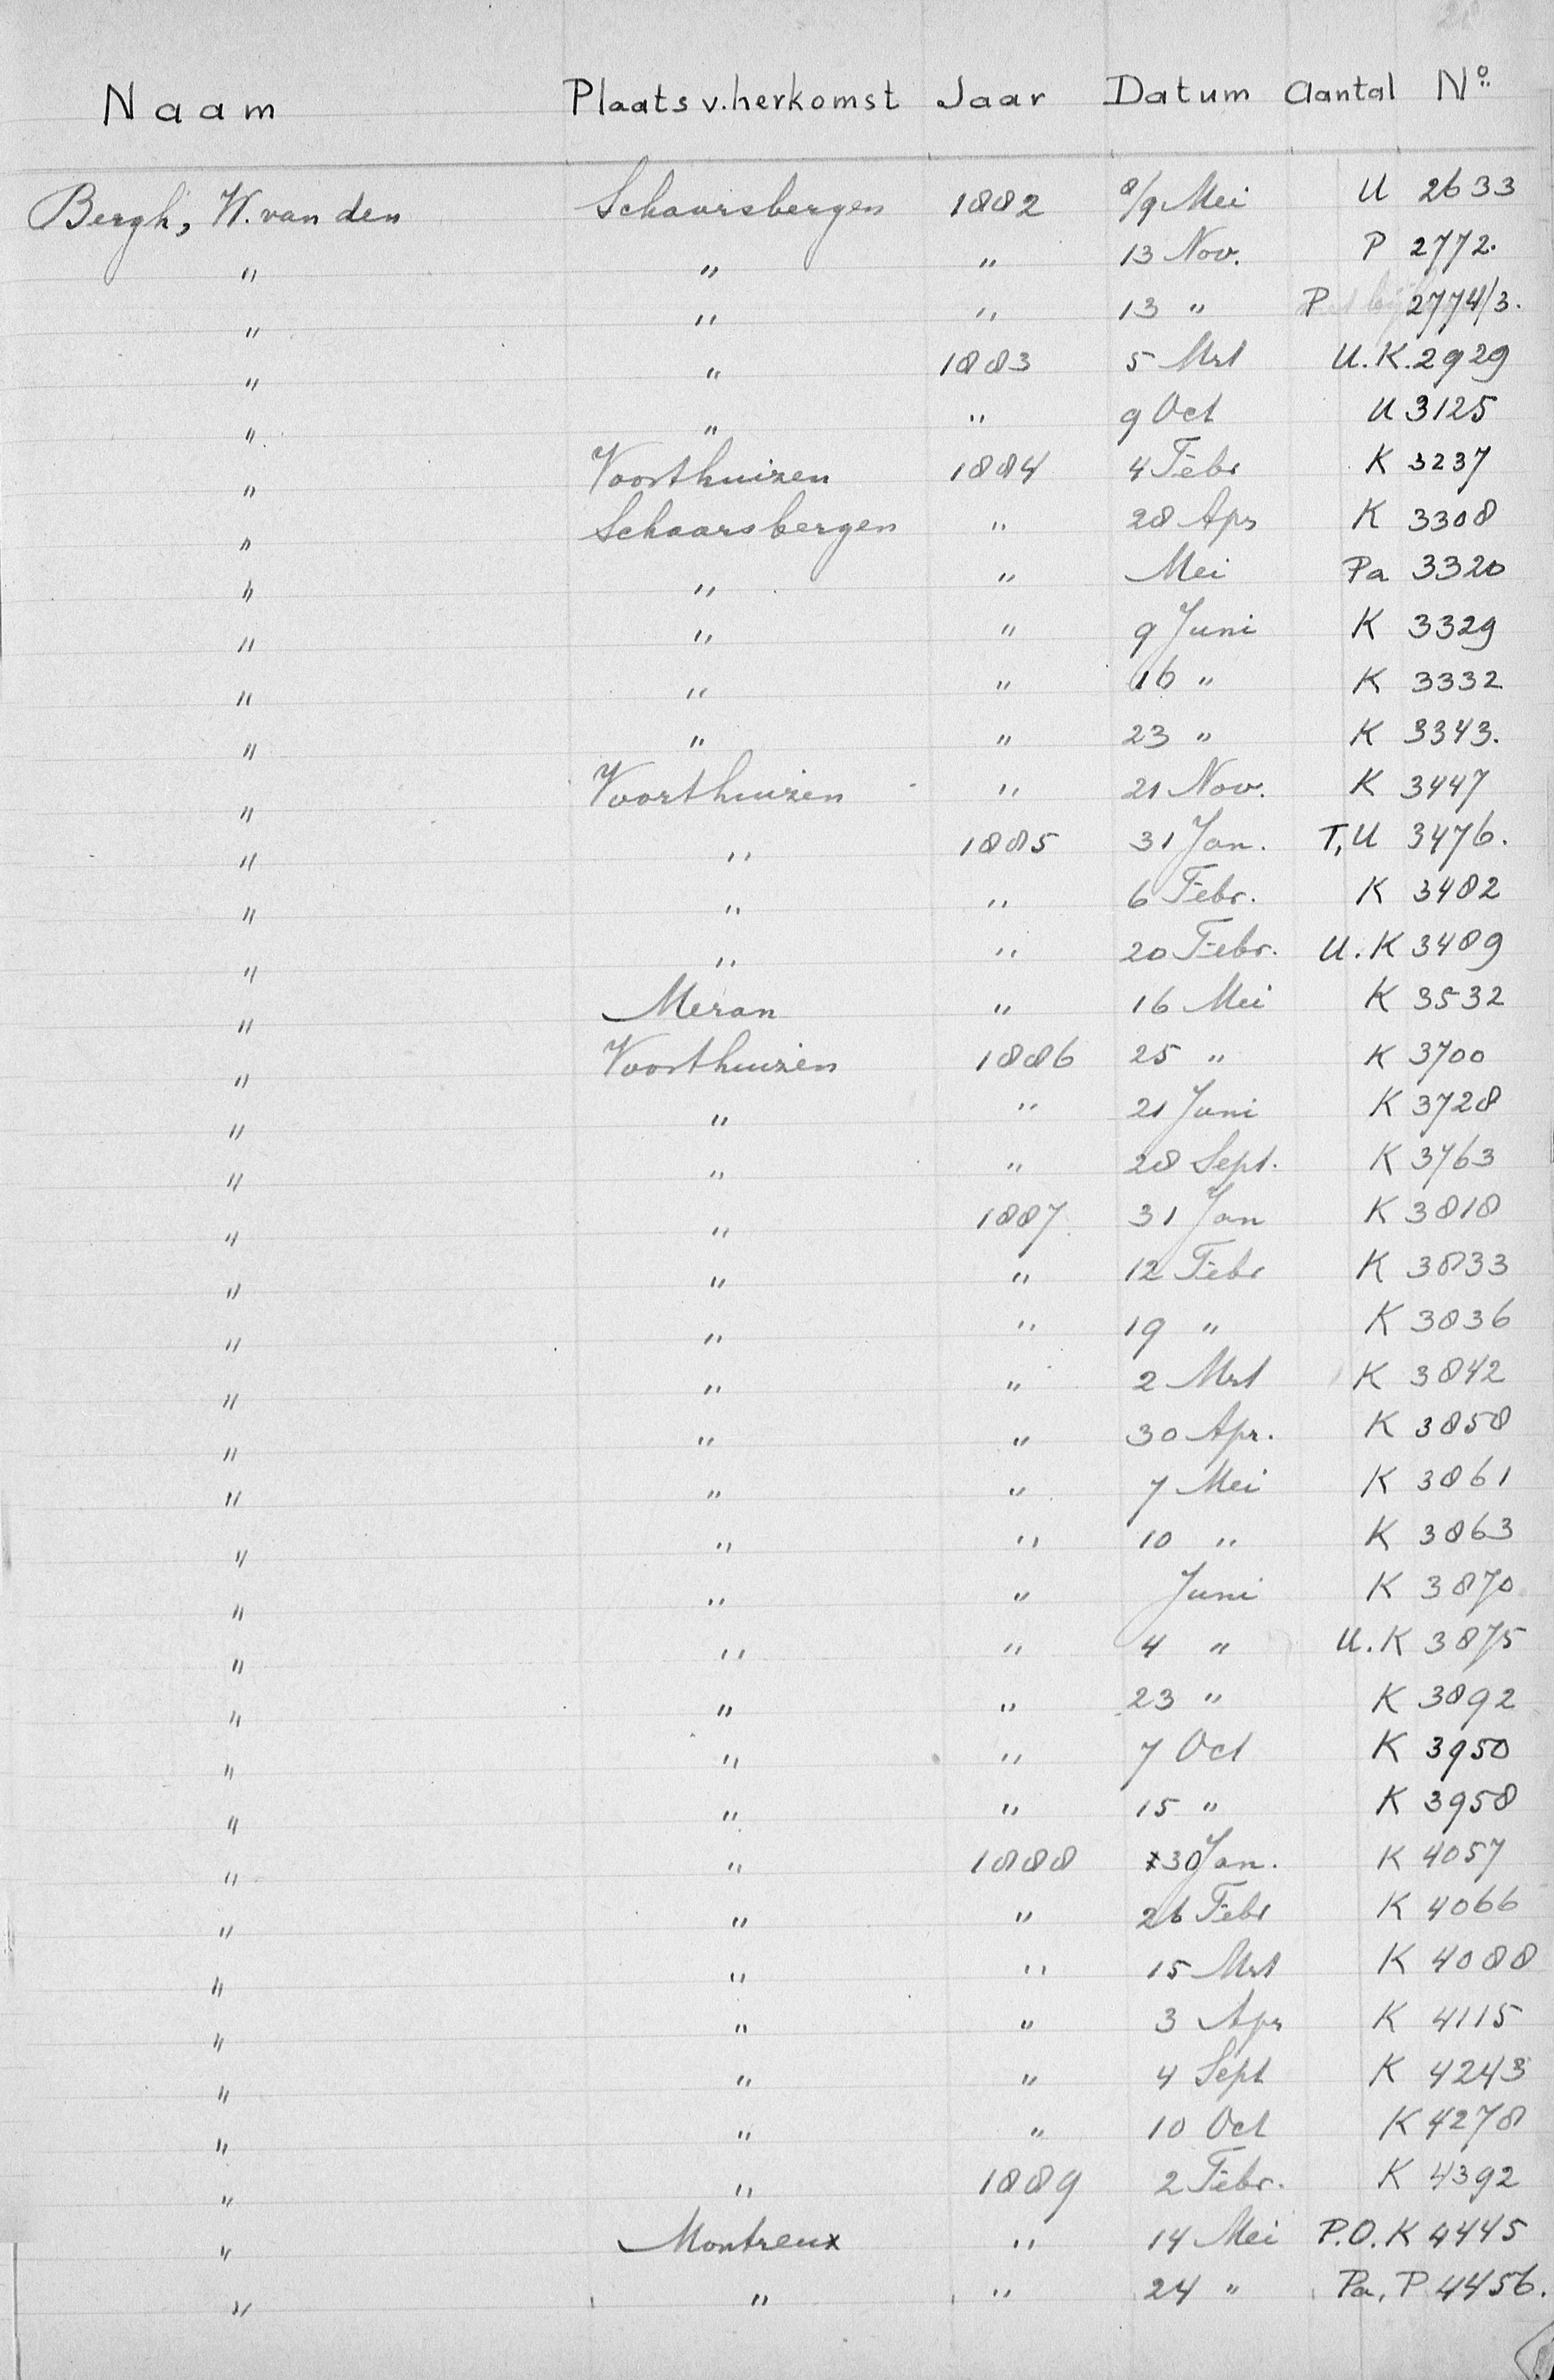 28
Naam Plaats v. herkomst Jaar Datum Aantal No.
Bergh, W. van den Schaarsbergen 1882 8/9 Mei U 2633
" " " 13 Nov. P 2772.
" " " 13 " P 2774/3.
" " 1883 5 Mrt U.K. 2929
" " " 9 Oct U 3125
" Voorthuizen 1884 4 Febr K 3237
" Schaarsbergen " 28 Apr K 3308
" " " Mei Pa 3320
" " " 9 Juni K 3329
" " " 16 " K 3332
" " " 23 " K 3343.
" Voorthuizen " 21 Nov. K 3447
" " 1885 31 Jan. T, U 3476.
" " " 6 Febr. K 3482
" " " 20 Febr. U.K 3489
" Meran " 16 Mei K 3532
" Voorthuizen 1886 25 " K 3700
" " " 21 Juni K 3728
" " " 28 Sept. K 3763
" " 1887 31 Jan K 3818
" " " 12 Febr K 3833
" " " 19 " K 3836
" " " 2 Mrt K 3842
" " " 30 Apr. K 3858
" " " 7 Mei K 3861
" " " 10 " K 3863
" " " Juni K 3870
" " " 4 " U.K 3875
" " " 23 " K 3892
" " " 7 Oct K 3950
" " " 15 " K 3958
" " 1888 x30 Jan. K 4057
" " " 26 Febr K 4066
" " " 15 Mrt K 4088
" " " 3 Apr K 4115
" " " 4 Sept K 4243
" " " 10 Oct K 4278
" " 1889 2 Febr. K 4392
" Montreux " 14 Mei P.O.K 4445
" " " 24 " Pa, P 4456.